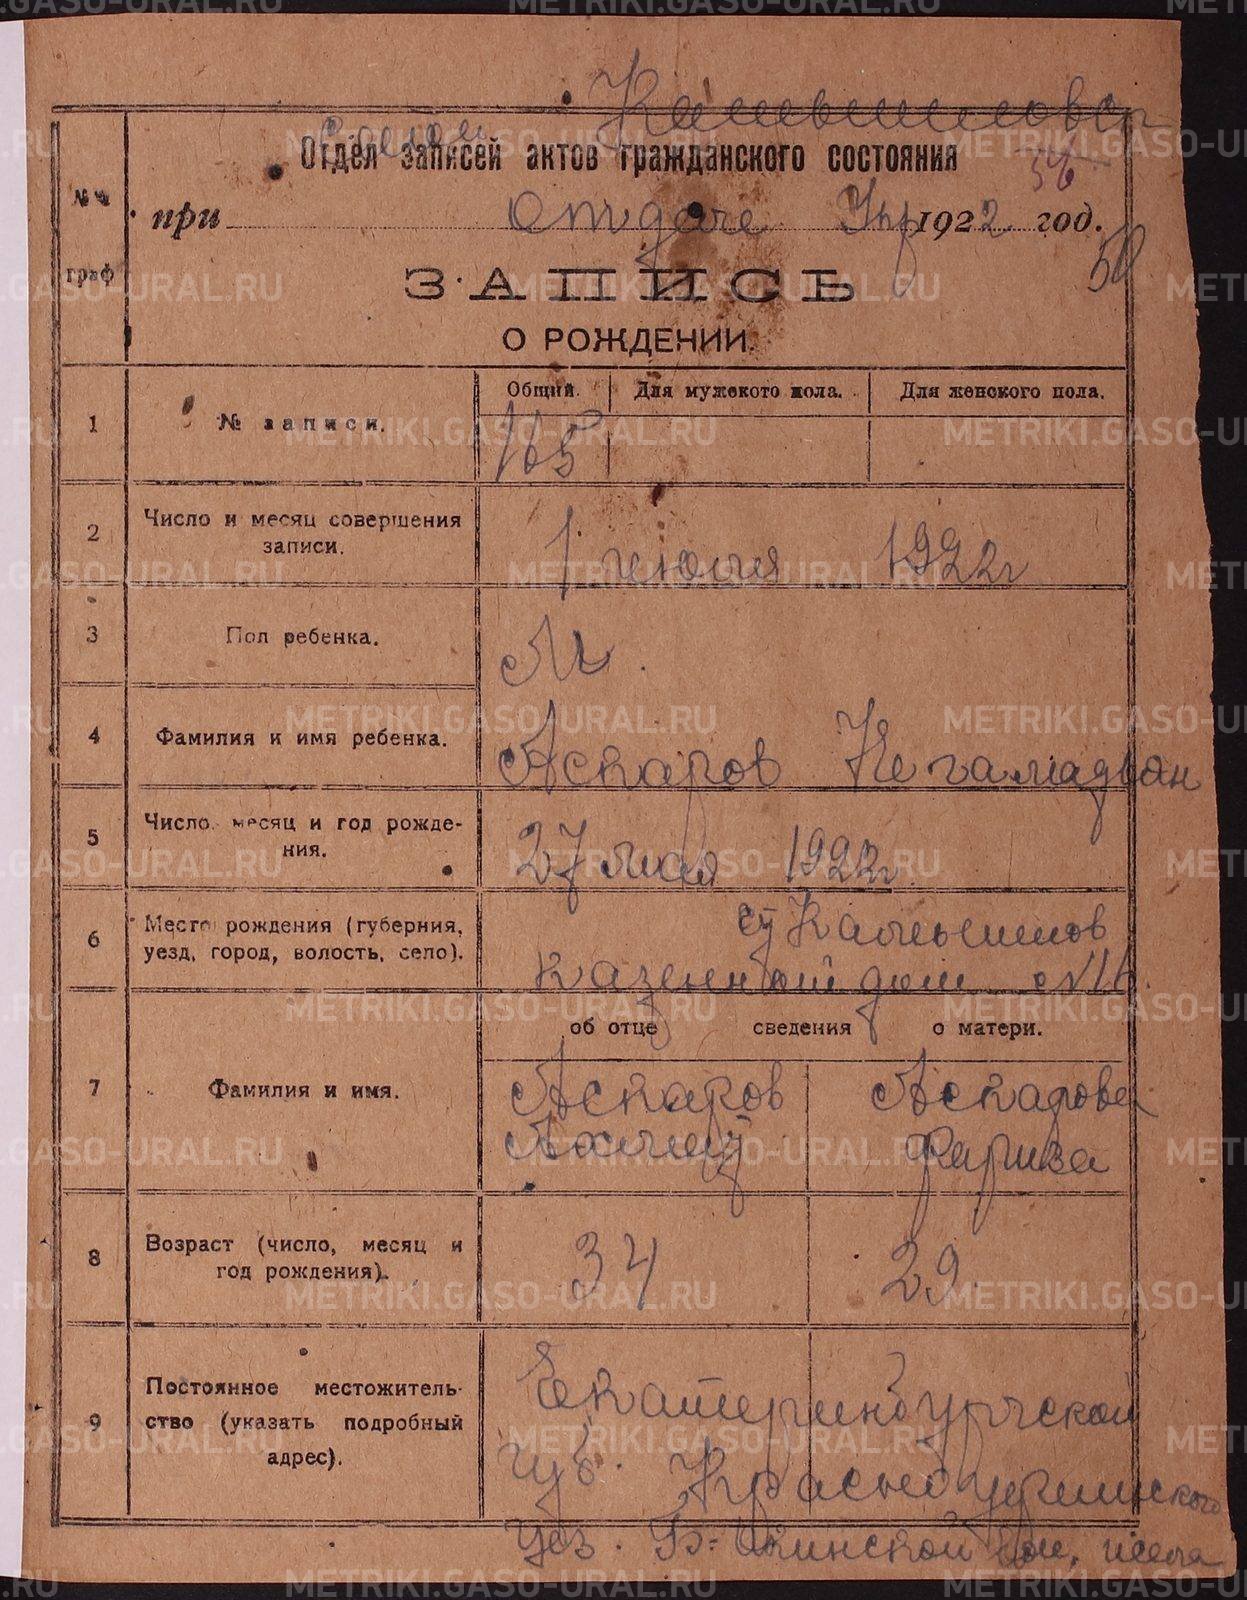 Камышловой
Отдел записей актов гражданского состояния
№№ граф
при отделе Упр 1922 год.
56
50
ЗАПИСЬ
О РОЖДЕНИИ.
Общий. Для мужского пола. Для женского пола.
1 № записи. 165
2 Число и месяц совершения записи. 1 июня 1922 г
3 Пол ребенка. М.
4 Фамилия и имя ребенка. Аскаров Негамадьян
5 Число, месяц и год рождения. 27 мая 1922 г.
6 Место рождения (губерния, уезд, город, волость, село). Камышлов
Казенный дом №16.
об отце сведения о матери.
7 Фамилия и имя. Аскаров Аскарова
Ахмет Фариза
8 Возраст (число, месяц и год рождения). 34 29.
9 Постоянное местожительство (указать подробный адрес). Екатеринбургской
губ. Красноуфимского
уез. Б-Окинской вол.
METRIKI.GASO-URAL.RU